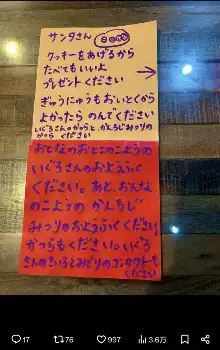 サンタさん
クッキーをあげるから
たべてもいいよ
プレゼントください
ぎゅうにゅうもおいとくから
よかったら のんでください
いぐろさんのかつらと、かんろじみつりの
かつら ください
おとなのおとこのこようの
いぐろさんのおようふく
ください。あと、おんな
のこようの かんろじ
みつりのおようふく ください
かつらもください。いぐろ
さんのきいろとみどりのコンタクトも
ください
17
76
997
3.6万